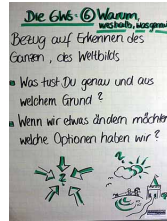 Die 6W's - ⑥ Warum,
weshalb, was genau
Bezug auf Erkennen des
Ganzen, des Weltbilds
Was tust Du genau und aus
welchem Grund?
Wenn wir etwas ändern möchten
welche Optionen haben wir?
?